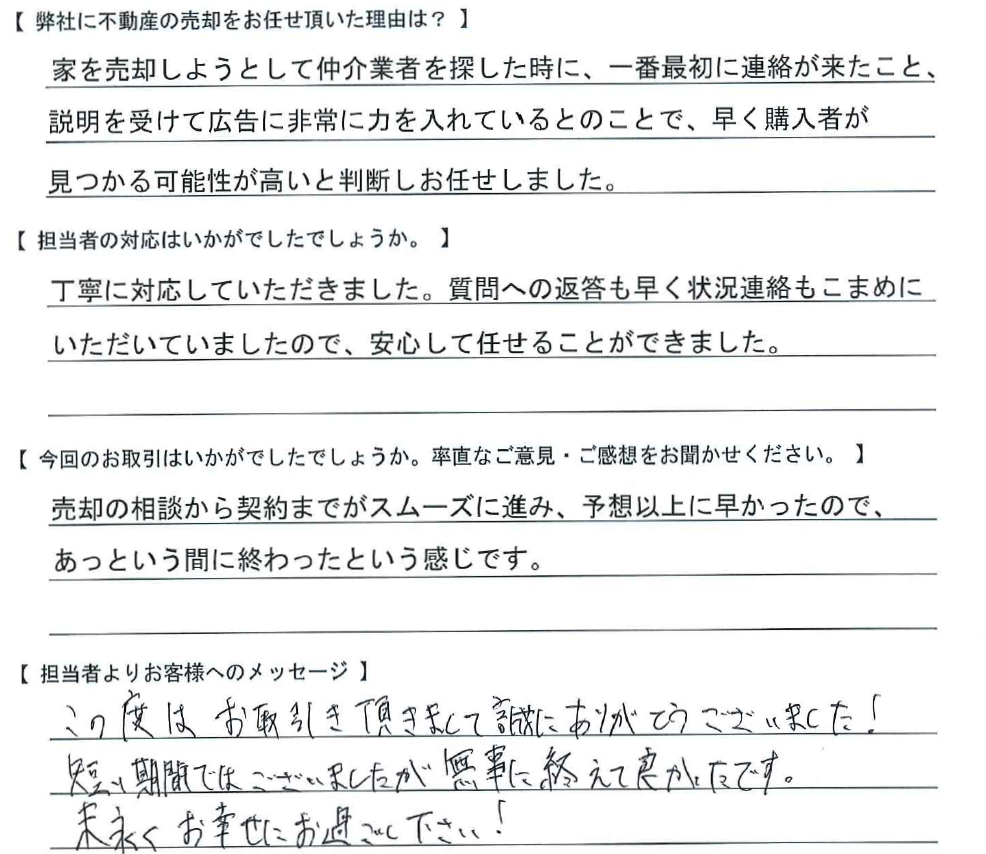 【 弊社に不動産の売却をお任せ頂いた理由は？ 】
家を売却しようとして仲介業者を探した時に、一番最初に連絡が来たこと、
説明を受けて広告に非常に力を入れているとのことで、早く購入者が
見つかる可能性が高いと判断しお任せしました。
【 担当者の対応はいかがでしたでしょうか。 】
丁寧に対応していただきました。質問への返答も早く状況連絡もこまめに
いただいていましたので、安心して任せることができました。
【 今回のお取引はいかがでしたでしょうか。率直なご意見・ご感想をお聞かせください。 】
売却の相談から契約までがスムーズに進み、予想以上に早かったので、
あっという間に終わったという感じです。
【 担当者よりお客様へのメッセージ 】
この度は お取引き頂きまして誠にありがとうございました！
短い期間ではございましたが無事に終えて良かったです。
末永くお幸せにお過ごし下さい！